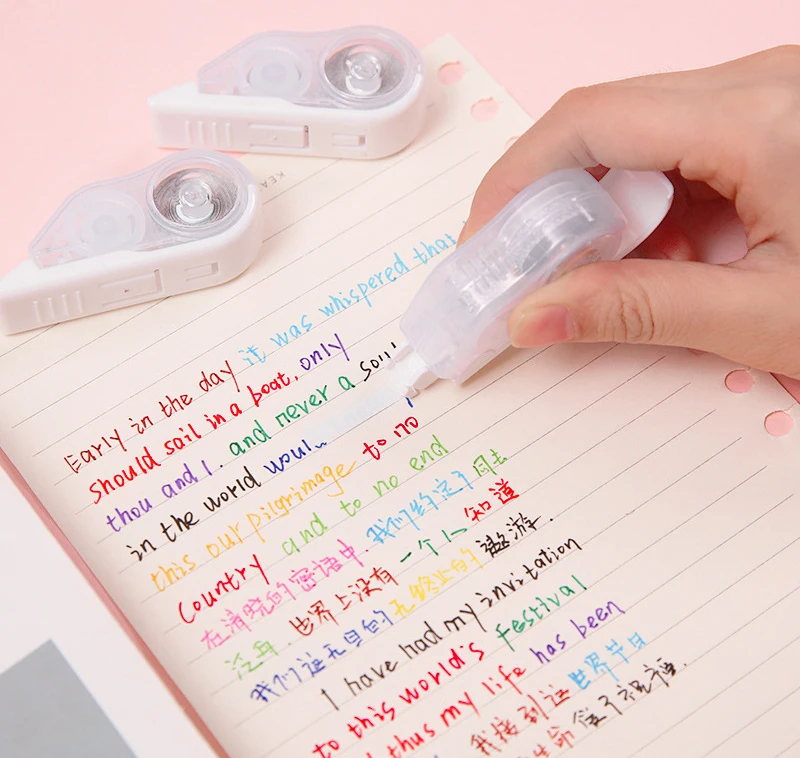 KEA
Early in the day it was whispered that
should sail in a boat, only
thou and I. and never a soul
in the world woul
this our pilgrimage to no
country and to no end
在清晓的密语中. 我们约定了同去
泛舟. 世界上没有一个人知道
我们这无目的无终止的遨游.
I have had my invitation
to this world's Festival
thus my life has been
我接到这世界节日
生命 住了祝福.